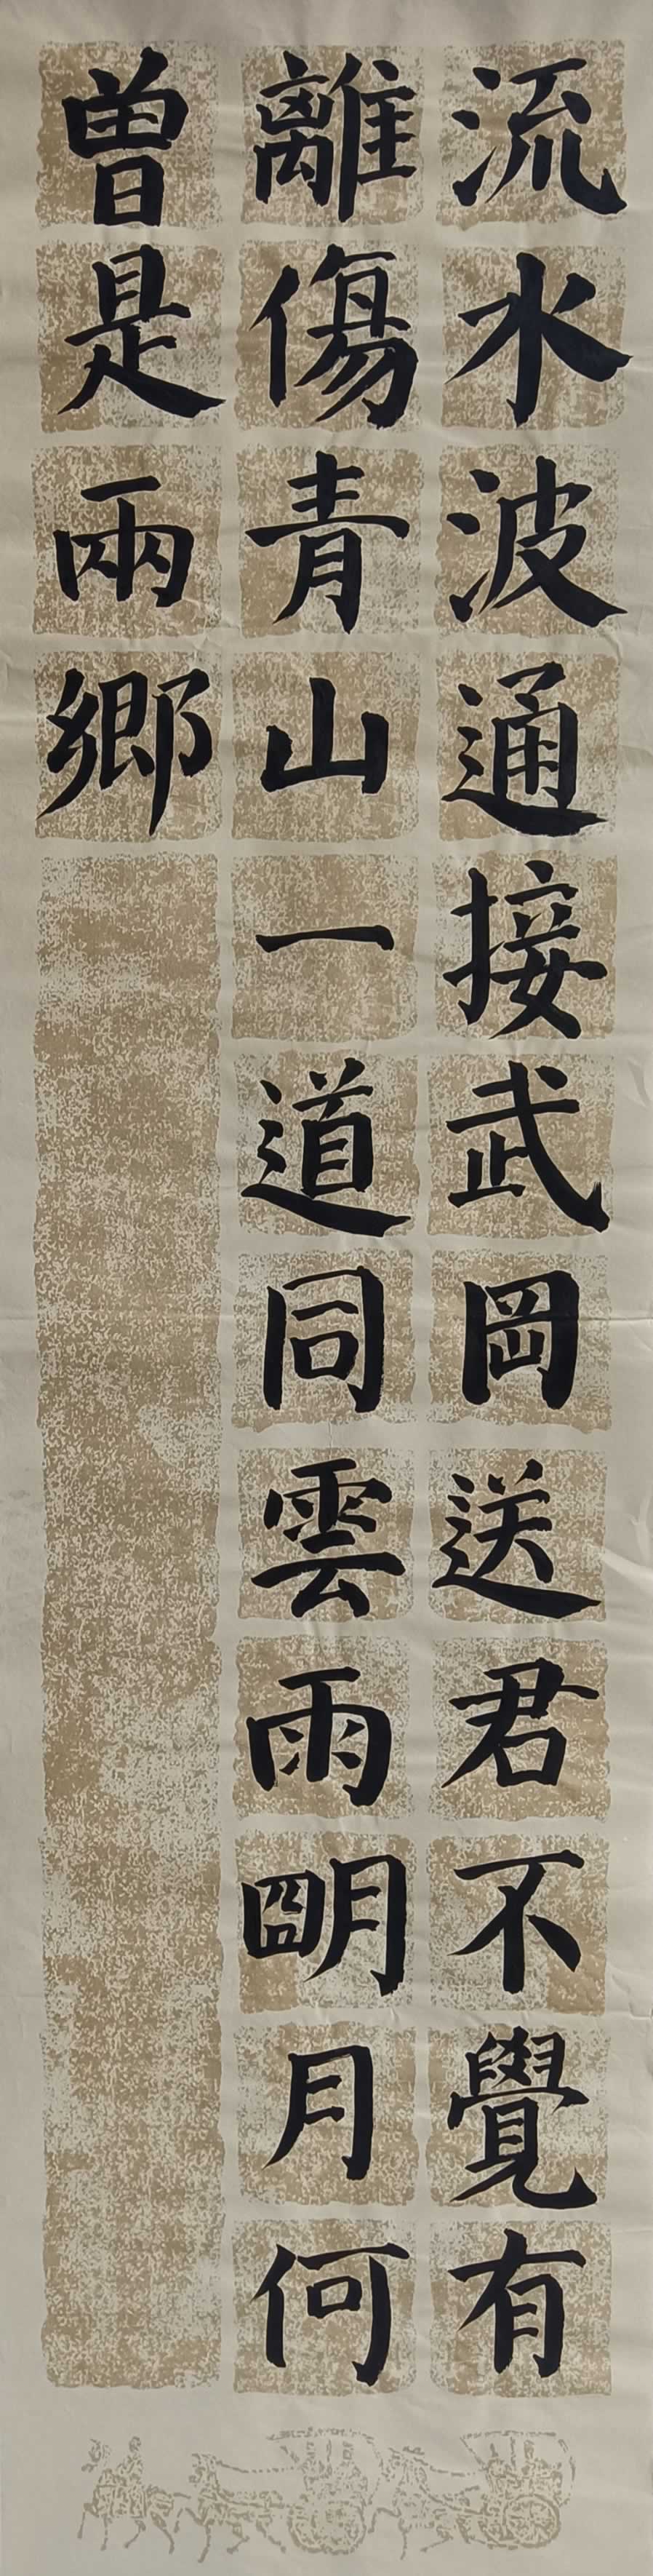 流水波通接武岡送君不覺有
離傷青山一道同雲雨朙月何
曾是兩鄉